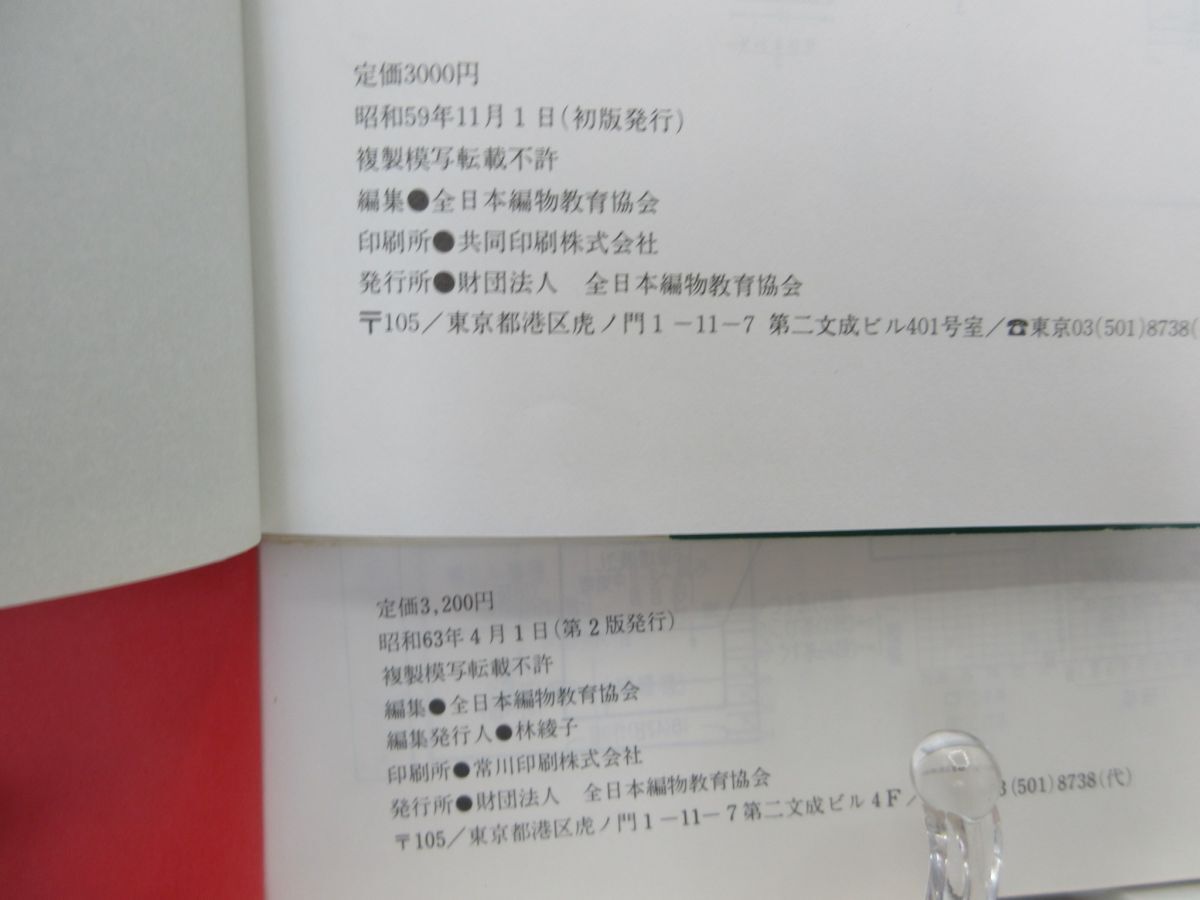 定価3000円
昭和59年11月1日(初版発行)
複製模写転載不許
編集●全日本編物教育協会
印刷所●共同印刷株式会社
発行所●財団法人　全日本編物教育協会
〒105／東京都港区虎ノ門1-11-7 第二文成ビル401号室／☎東京03(501)8738(
定価3,200円
昭和63年4月1日(第2版発行)
複製模写転載不許
編集●全日本編物教育協会
編集発行人●林綾子
印刷所●常川印刷株式会社
発行所●財団法人　全日本編物教育協会
〒105／東京都港区虎ノ門1-11-7第二文成ビル4F／ 3(501)8738(代)